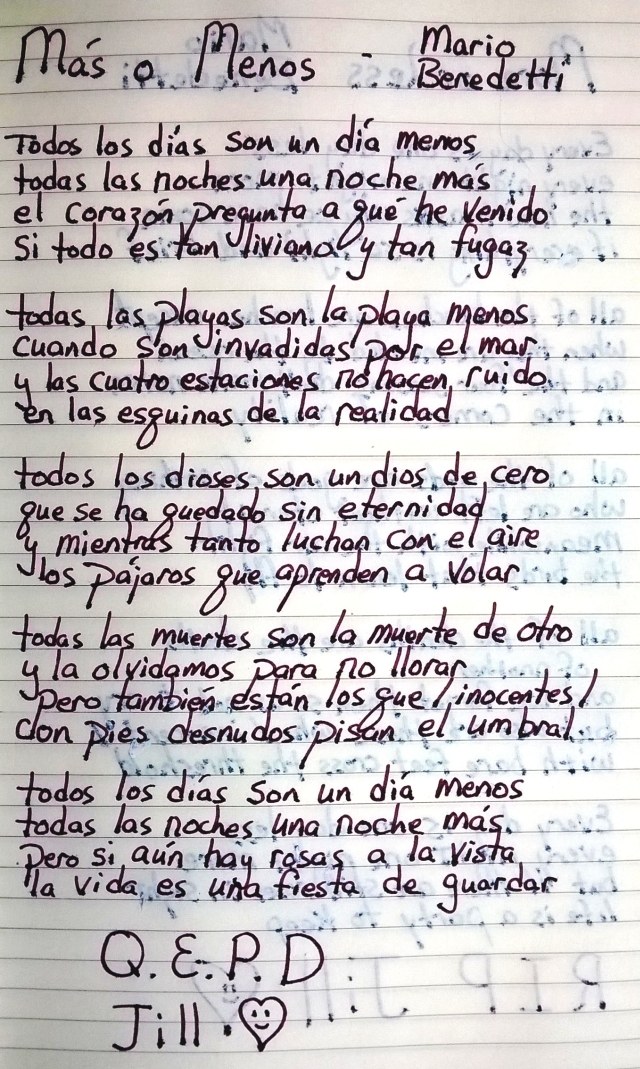 Más o Menos - Mario
Benedetti
Todos los días son un día menos
todas las noches una noche más
el corazón pregunta a qué he venido
Si todo es tan liviano y tan fugaz
todas las playas son la playa menos
cuando son invadidas por el mar
y las cuatro estaciones no hacen ruido
en las esquinas de la realidad
todos los dioses son un dios de cero
que se ha quedado sin eternidad
y mientras tanto luchan con el aire
los pájaros que aprenden a volar
todas las muertes son la muerte de otro
y la olvidamos para no llorar
pero también están los que / inocentes /
con pies desnudos pisan el umbral
todos los días son un día menos
todas las noches una noche más
Pero si aún hay rosas a la vista
la vida es una fiesta de guardar
Q.E.P.D
Jill.